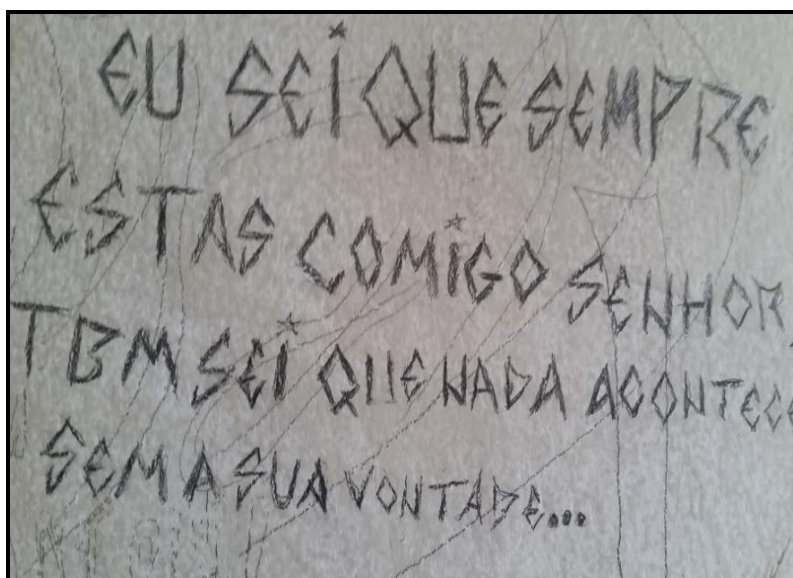 EU SEI QUE SEMPRE
ESTAS COMIGO SENHOR,
TBM SEI QUE NADA ACONTECE
SEM A SUA VONTADE...